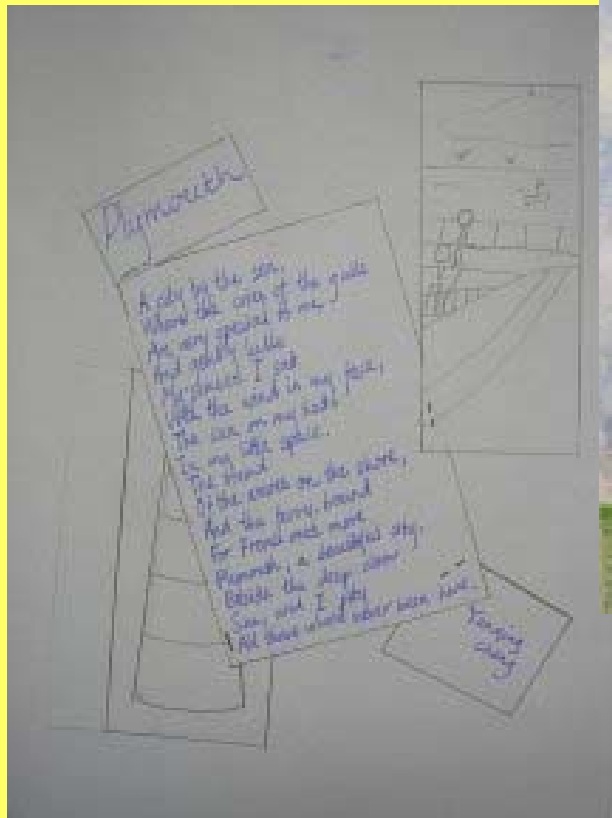 Plymouth
A city by the sea,
Where the cries of the gulls
Are very special to me.
And gently
I sat
With the wind in my face,
The sun on my
In my little space.
The
Of the waves on the shore,
And the ferry, bound
For France once more
Plymouth, a beautiful city,
the deep, clear
Sea, and I pity
All those who'd never been here.